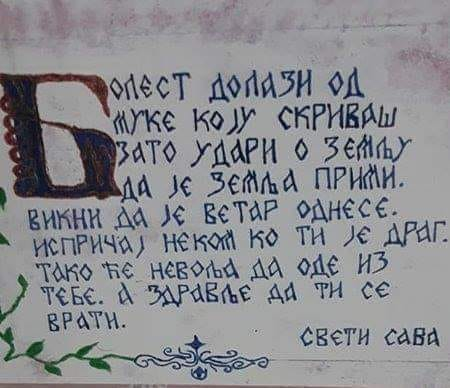 Болест долази од
муке коју скриваш
зато удари о земљу
да је земља прими.
викни да је ветар однесе.
испричај неком ко ти је драг.
тако ће невоља да оде из
тебе. а здравље да ти се
врати.
свети сава